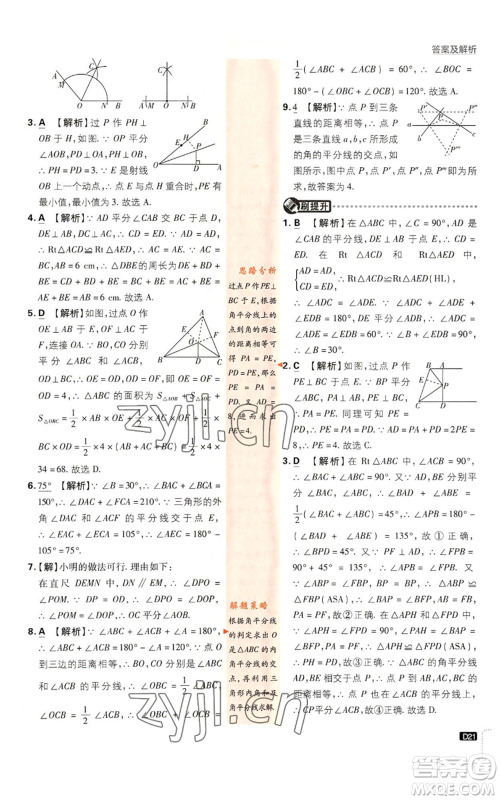 答案及解析
3. A 【解析】过点 P 作 PH⊥
OB 于 H,如图. ∵ OP 平分
∠AOB,PD⊥OA,PH⊥OB,
∴ PH=PD=3. ∵ 点 E 是射线
OB 上的一个动点,∴ 点 E 与 H 重合时,PE 有
最小值,最小值为 3. 故选 A.
4. A 【解析】∵ AD 平分∠CAB,DE⊥AB,∠C=
90°,∴ DE=DC,∴ Rt△ACD≌Rt△AED,∴ AC=
AE,∵ AB=6 cm,∴ △DBE的周长为 DE+BD+
BE=CD+BD+BE=BC+BE=AC+BE=AE+
BE=AB=6 cm. 故选 A.
5. D 【解析】如图,过点 O 作
OE⊥AB 于 E,OF⊥AC 于
F,连接 OA. ∵ OB,OC 分别
平分∠ABC 和∠ACB,OD⊥
BC,∴ OE=OD,OD=OF,即 OE=OF=
OD=4,∴ △ABC 的面积= S△AOB+S△AOC+
S△OBC=1/2×AB×OE+1/2×AC×OF+1/2×
BC×OD=1/2×4×(AB+AC+BC)=1/2×4×
34=68. 故选 D.
6. 75° 【解析】∵ ∠B=30°,∴ ∠BAC+∠BCA=
180°-∠B=180°-30°=150°. ∵ 三角形的外
角∠DAC 和∠ACF 的平分线交于点 E,
∴ ∠EAC+∠ECA=105°,∴ ∠AEC=180°-
105°=75°.
7.【解】小明的做法可行. 理由如下:
在直尺 DEMN 中,DN∥EM,∴ ∠DPO=
∠POM. ∵ DP=DO,∴ ∠DPO=∠DOP,
∴ ∠POM=∠DOP,∴ OP 平分∠AOB.
8. A 【解析】∵ ∠ABC+∠ACB+∠A=180°,
∠A=60°,∴ ∠ABC+∠ACB=120°. ∵ 点 O
到三边的距离相等,∴ 点 O 是∠ABC
和∠ACB 的平分线,∴ ∠OBC=1/2∠ABC,
∠OCB=1/2∠ACB,∴ ∠OBC+∠OCB=
思路分析
过点 P 作 PE⊥
BC 于 E,根据
角平分线上的
点到角的两边
的距离相等可
得 PA=PE,
PD=PE,那么
PE=PA=
PD. 又 AD=
8,进而求出
PE=4.
解题策略
根据角平分线
的判定求出 O
是△ABC 的内
角平分线的交
点,再利用三
角形内角和及
角平分线求解.
1/2(∠ABC+∠ACB)=60°,∴ ∠BOC=
180°-(∠OBC+∠OCB)=120°. 故选 A.
9. 4 【解析】∵ 点 P 到三条
直线的距离相等,∴ 点 P 是
三条直线 a,b,c 形成
的角的平分线的交点,如
图所示,图中点 P,点 P′,点 P″,点 P‴即为所
求,故答案为 4.
刷提升
1. B 【解析】∵ ∠C=90°,AD 平
分∠BAC,DE⊥AB,∴ CD=
ED. 在 Rt△ACD 和 Rt△AED
中,{AD=AD,DC=ED,
∴ Rt△ACD≌Rt△AED(HL),
∴ ∠ADC=∠ADE,AC=AE. ∵ ∠ADE+∠ADC+
∠EDB=180°,∠B+∠EDB=90°,∴ 2∠ADC+
∠EDB=180°,∴ 2∠ADC=90°+∠B. 故选 B.
2. C 【解析】如图,过点 P 作
PE⊥BC 于 E. ∵ BP 平分
∠ABC,PA⊥AB,PE⊥BC,
∴ PA=PE. 同理可知 PE=
PD,∴ PE=PA=PD. ∵ PA+
PD=AD=8,∴ PA=PD=4,∴ PE=4. 故选 C.
3. D 【解析】在 Rt△ABC 中,∠ACB=90°,
∴ ∠BAC+∠ABC=90°. ∵ AD,BE 分别平
分∠BAC,∠ABC,∴ ∠BAD+∠ABE=
1/2(∠BAC+∠ABC)=1/2(180°-∠ACB)=
1/2×(180°-90°)=45°,∴ ∠APB=180°-
(∠BAD+∠ABE)=135°,故①正确;
∴ ∠BPD=45°. 又∵ PF⊥AD,∴ ∠FPB=
90°+45°=135°,∴ ∠APB=∠FPB. 又
∵ ∠ABP=∠FBP,BP=BP,∴ △ABP≌
△FBP(ASA),∴ ∠BAP=∠BFP,AB=FB,
PA=PF,故②正确;在△APH 和△FPD 中,
∵ ∠APH=∠FPD=90°,PA=PF,∠HAP=
∠BAP=∠BFP,∴ △APH≌△FPD(ASA),
∴ PH=PD,故③正确;∵ △ABC 的角平分线
AD,BE 相交于点 P,∴ 点 P 也在∠ACB
的平分线上,∴ CP 平分∠ACB,故④正确.
故选 D.
D21
zyjl.cn